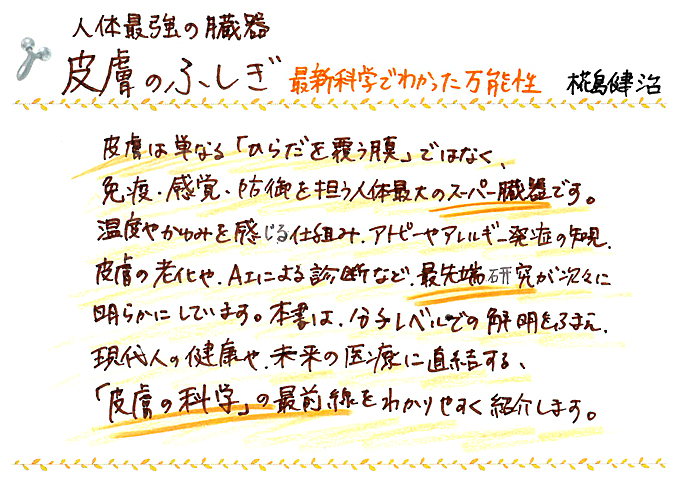 人体最強の臓器
皮膚のふしぎ 最新科学でわかった万能性 椛島健治
皮膚は単なる「からだを覆う膜」ではなく、
免疫・感覚・防御を担う人体最大のスーパー臓器です。
温度やかゆみを感じる仕組み、アトピーやアレルギー発症の知見、
皮膚の老化や、AIによる診断など、最先端研究が次々に
明らかにしています。本書は、分子レベルでの解明をふまえ、
現代人の健康や、未来の医療に直結する、
「皮膚の科学」の最前線をわかりやすく紹介します。